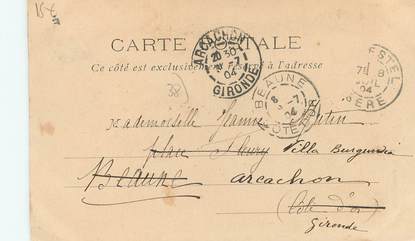 15-
CARTE POSTALE
Ce côté est exclusivement réservé à l'adresse
ARCACHON
20 30
-7
04
GIRONDE
BEAUNE
6
-7
04
CÔTE D'OR
7E 8
04
ÈRE
38
Mademoiselle Jeanne
place Fleury Villa Burgundia
Beaune arcachon
(Côte d'or)
Gironde